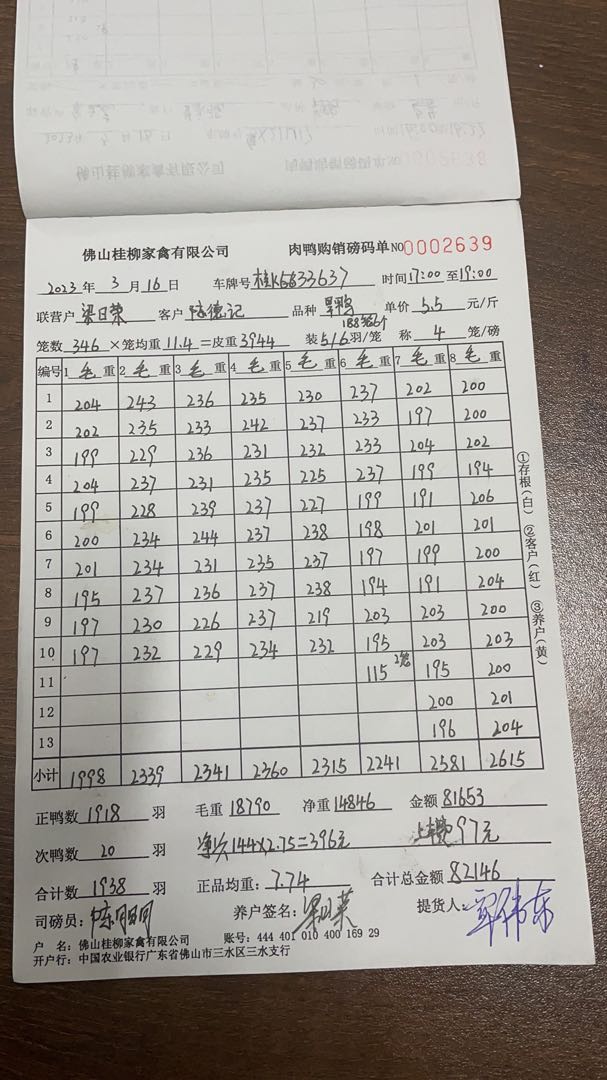 佛山桂柳家禽有限公司 肉鸭购销磅码单NO 0002639
2023 年 3 月 16 日 车牌号 桂K6833637 时间17:00 至19:00
联营户 梁日荣 客户 陆德记 品种 单价 5.5 元/斤
笼数 346 ×笼均重 11.4 =皮重 3944 装 5/6 羽/笼 称 4 笼/磅
编号 1 毛 重 2 毛 重 3 毛 重 4 毛 重 5 毛 重 6 毛 重 7 毛 重 8 毛 重
1 204 243 236 235 230 237 202 200
2 202 235 233 242 237 233 197 200
3 199 229 236 231 232 233 204 202
4 204 237 231 235 225 237 199 194
5 199 228 239 237 227 199 191 206
6 200 234 244 237 238 198 201 201
7 201 234 231 235 237 197 199 200
8 195 237 236 237 238 194 191 204
9 197 230 226 237 219 203 203 200
10 197 232 229 234 232 195 203 203
11 115 2笼 195 200
12 200 201
13 196 204
小计 1998 2339 2341 2360 2315 2241 2581 2615
①存根(白) ②客户(红) ③养户(黄)
正鸭数 1918 羽 毛重 18790 净重 14846 金额 81653
次鸭数 20 羽 净次144×2.75=396元 上车费97元
合计数 1938 羽 正品均重: 7.74 合计总金额 82146
司磅员: 养户签名: 提货人:
户 名: 佛山桂柳家禽有限公司 账号: 444 401 010 400 169 29
开户行: 中国农业银行广东省佛山市三水区三水支行